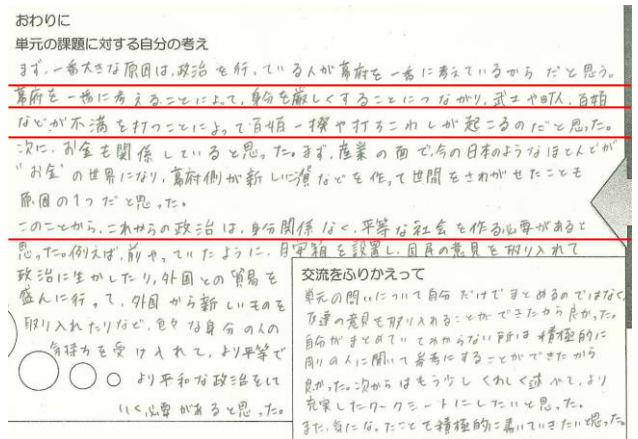 おわりに
単元の課題に対する自分の考え
まず、一番大きな原因は、政治を行っている人が幕府を一番に考えているからだと思う。
幕府を一番に考えることによって、身分を厳しくすることにつながり、武士や町人、百姓
などが不満を打つことによって百姓一揆や打ちこわしが起こるのだと思った。
次に、お金も関係していると思った。まず、産業の面で、今の日本のようなほとんどが
"お金"の世界になり、幕府側が新しい債などを作って世間をさわがせたことも
原因の1つだと思った。
このことから、これからの政治は、身分関係なく、平等な社会を作る必要があると
思った。例えば、前やっていたように、目安箱を設置し、国民の意見を取り入れて
政治に生かしたり、外国との貿易を
盛んに行って、外国から新しいものを
取り入れたりなど、色々な身分の人の
気持ちを受け入れて、より平等で
より平和な政治をして
いく必要があると思った。
交流をふりかえって
単元の問いについて自分だけでまとめるのではなく、
友達の意見も取り入れることができたから良かった。
自分がまとめていてわからない所は積極的に
周りの人に聞いて参考にすることができたから
良かった。次からはもう少しくわしく述べて、より
充実したワークシートにしたいと思った。
また、気になったことを積極的に書いていきたいと思った。